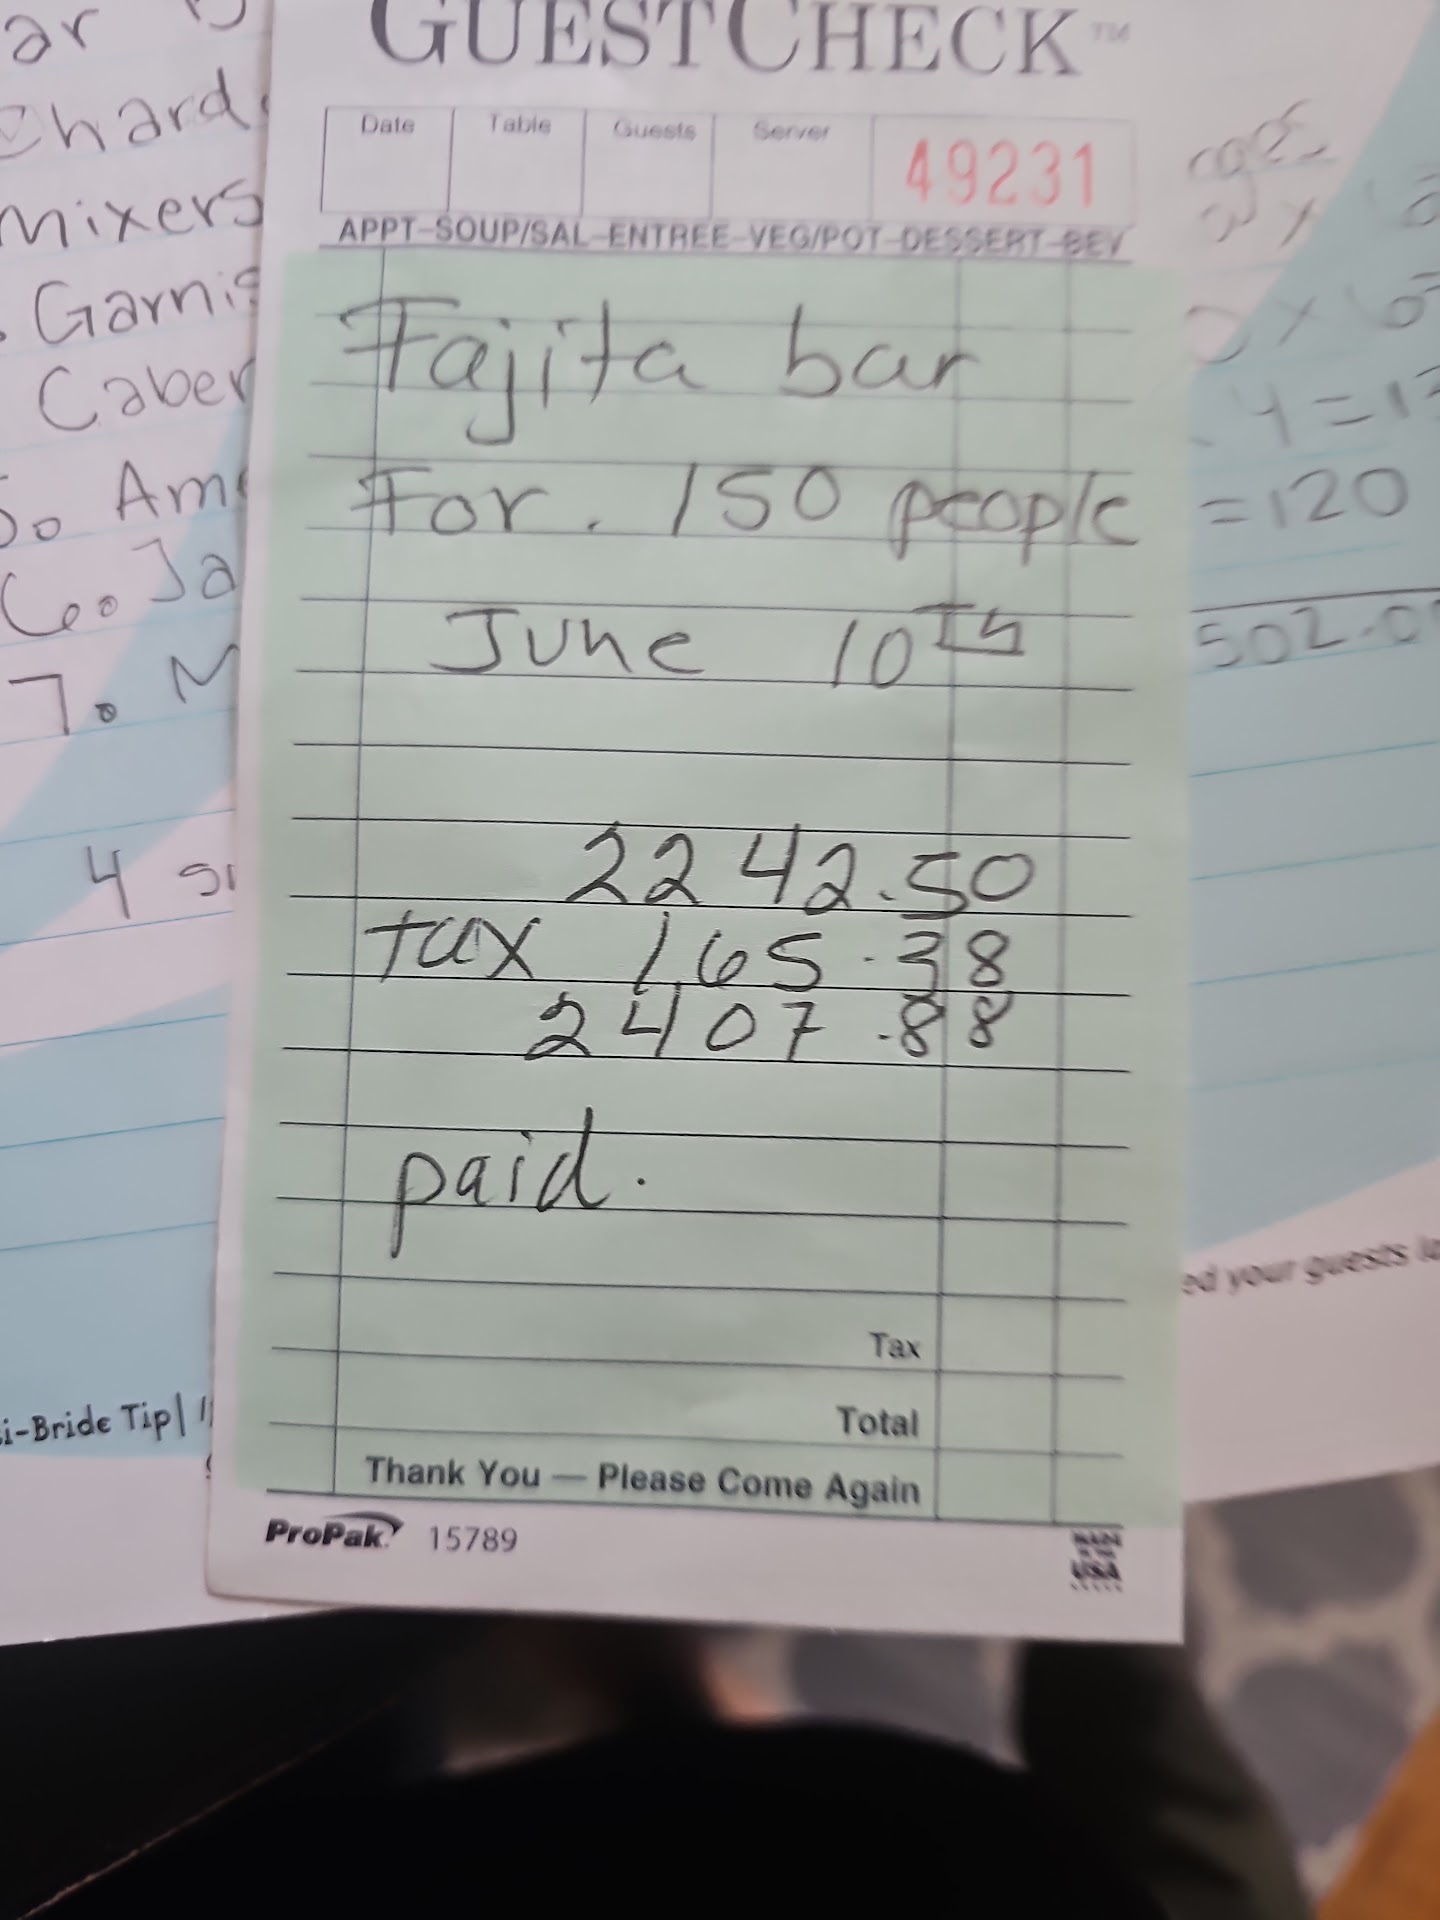 GUESTCHECK™
Date Table Guests Server 49231
APPT-SOUP/SAL-ENTREE-VEG/POT-DESSERT-BEV
Fajita bar
For. 150 people
June 10th
2242.50
tax 165.38
2407.88
paid.
Tax
Total
Thank You — Please Come Again
ProPak 15789
MADE IN THE USA
ar
Chard
mixers
Garnis
Caber
5. Am
6. Ja
7. M
4 su
i-Bride Tip|
= 120
502.0
ed your guests lo